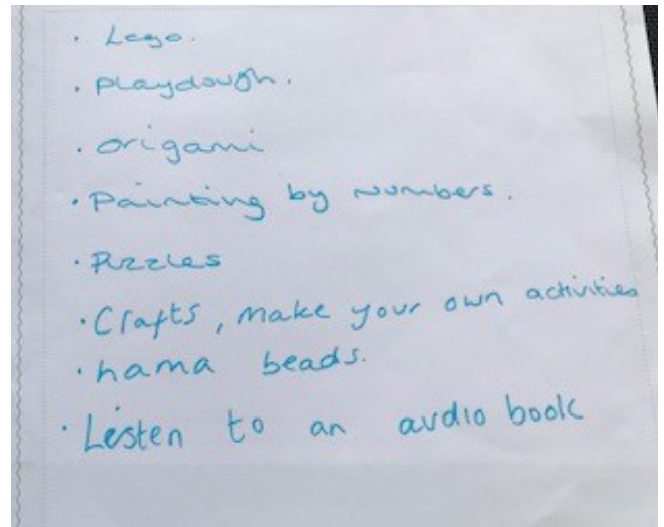 · Lego.
· Playdough.
· origami
· Painting by numbers.
· Puzzles
· Crafts, make your own activities
· hama beads.
· Listen to an audio book